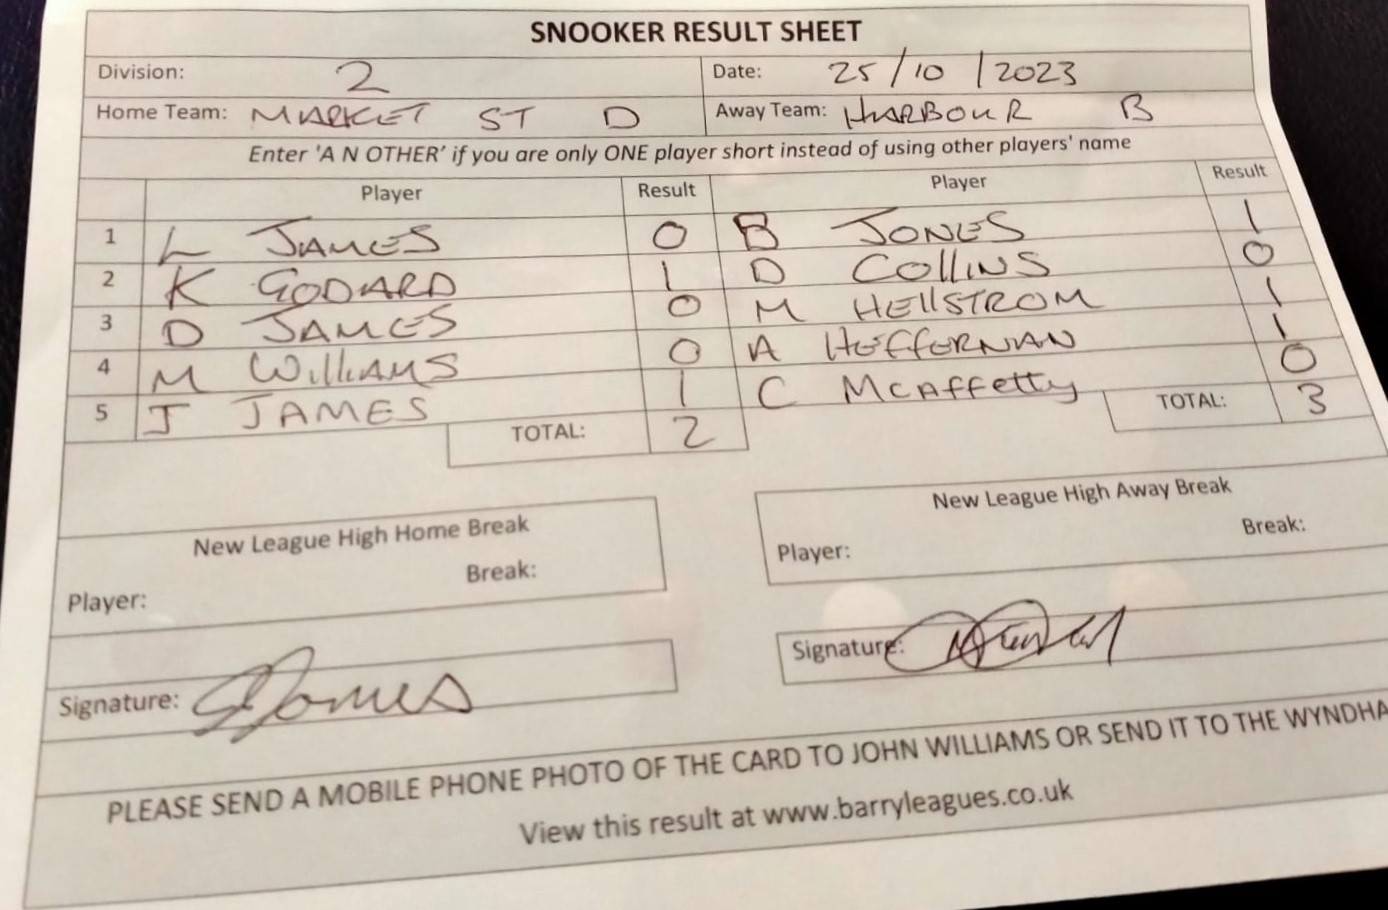 SNOOKER RESULT SHEET
Division: 2 Date: 25/10/2023
Home Team: MARKET ST D Away Team: HARBOUR B
Enter 'A N OTHER' if you are only ONE player short instead of using other players' name
Player Result Player Result
1 L JAMES 0 B JONES 1
2 K GODARD 1 D COLLINS 0
3 D JAMES 0 M HELLSTROM 1
4 M WILLIAMS 0 A HEFFERNAN 1
5 J JAMES 1 C McAFFETTY 0
TOTAL: 2 TOTAL: 3
New League High Home Break New League High Away Break
Break: Break:
Player: Player:
Signature: Signature:
PLEASE SEND A MOBILE PHONE PHOTO OF THE CARD TO JOHN WILLIAMS OR SEND IT TO THE WYNDHA
View this result at www.barryleagues.co.uk